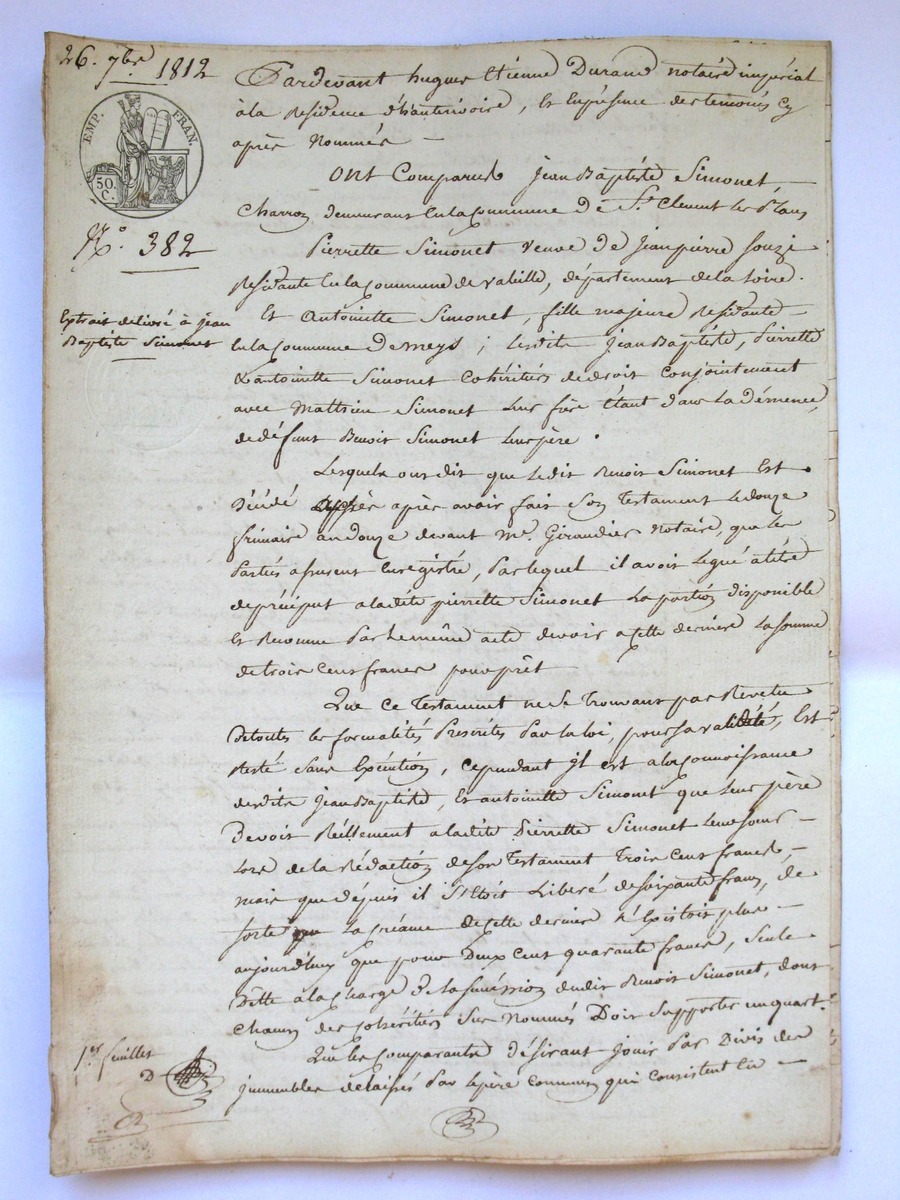 26. 7bre 1812
EMP. FRAN.
50.
C.
N.º 382
Extrait délivré à jean
Baptiste Simonet
Pardevant hugues Etienne Durand notaire impérial
à la Residence d'hauterivoire, Et En présence des temoins cy
après Nommés —
Ont Comparus jean Baptiste Simonet,
Charron demeurant En la Commune de St. Clement les places
Pierrette Simonet veuve de jean pierre
Residante En la Commune de valeille, département de la Loire.
Et Antoinette Simonet, fille majeure Residante
En la Commune de meys ; lesdits jean Baptiste, Pierrette
& antoinette Simonet Cohéritiers de droit Conjointement
avec Mathieu Simonet leur frère Etant dans la démence,
de défunt Benoit Simonet leur père.
Lesquels ont dit que ledit Benoit Simonet Est
Décédé après avoir fait son Testament le douze
frimaire an douze devant Me. Giraudier Notaire, que les
Parties assurent Enregistré, par lequel il avoit Légué à titre
de préciput à ladite pierrette Simonet la portion disponible
Et Reconnu par le même acte devoir a cette derniere la somme
de trois Cens francs pour prêt
Que ce Testament ne se Trouvant pas Revetu
De toutes les formalités Prescrites Par la loi, pour sa validité, Est
Resté sans Exécution, cependant il est a la connoissance
desdits jean Baptiste, Et antoinette Simonet que leur père
Devoit Réellement a ladite Pierrette Simonet leur sœur —
Lors de la Rédaction de son Testament Trois Cens francs, —
mais que dépuis il s'étoit Libéré de soixante francs, de
sorte que La créance de cette derniere n'Existoit plus —
aujourd'hui que pour Deux Cens quarante francs, seule
Dette à la charge de la succession dudit Benoit Simonet, dont
Chacun des cohéritiers sus Nommés Doit supporter un quart.
Que les comparants désirant jouir Par Divis des
immeubles délaissés Par le père Commun qui consistent En —
1er. feuillet
D